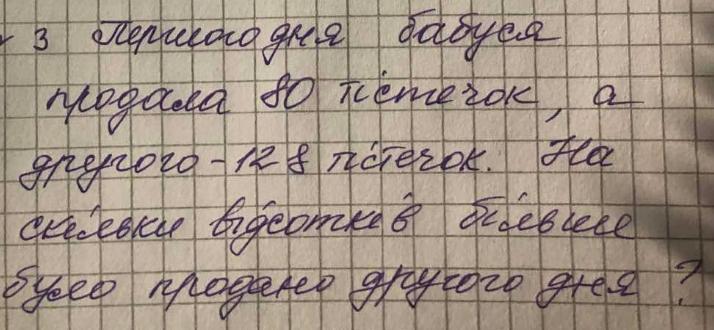 3 Першого дня бабуся
продала 80 тістечок, а
другого - 128 тістечок. На
скільки відсотків більше
було продано другого дня ?